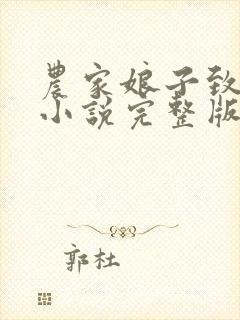 農家娘子致
小說完整版
郭杜